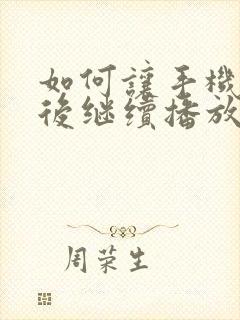 如何讓手機
後继续播放
周荣生